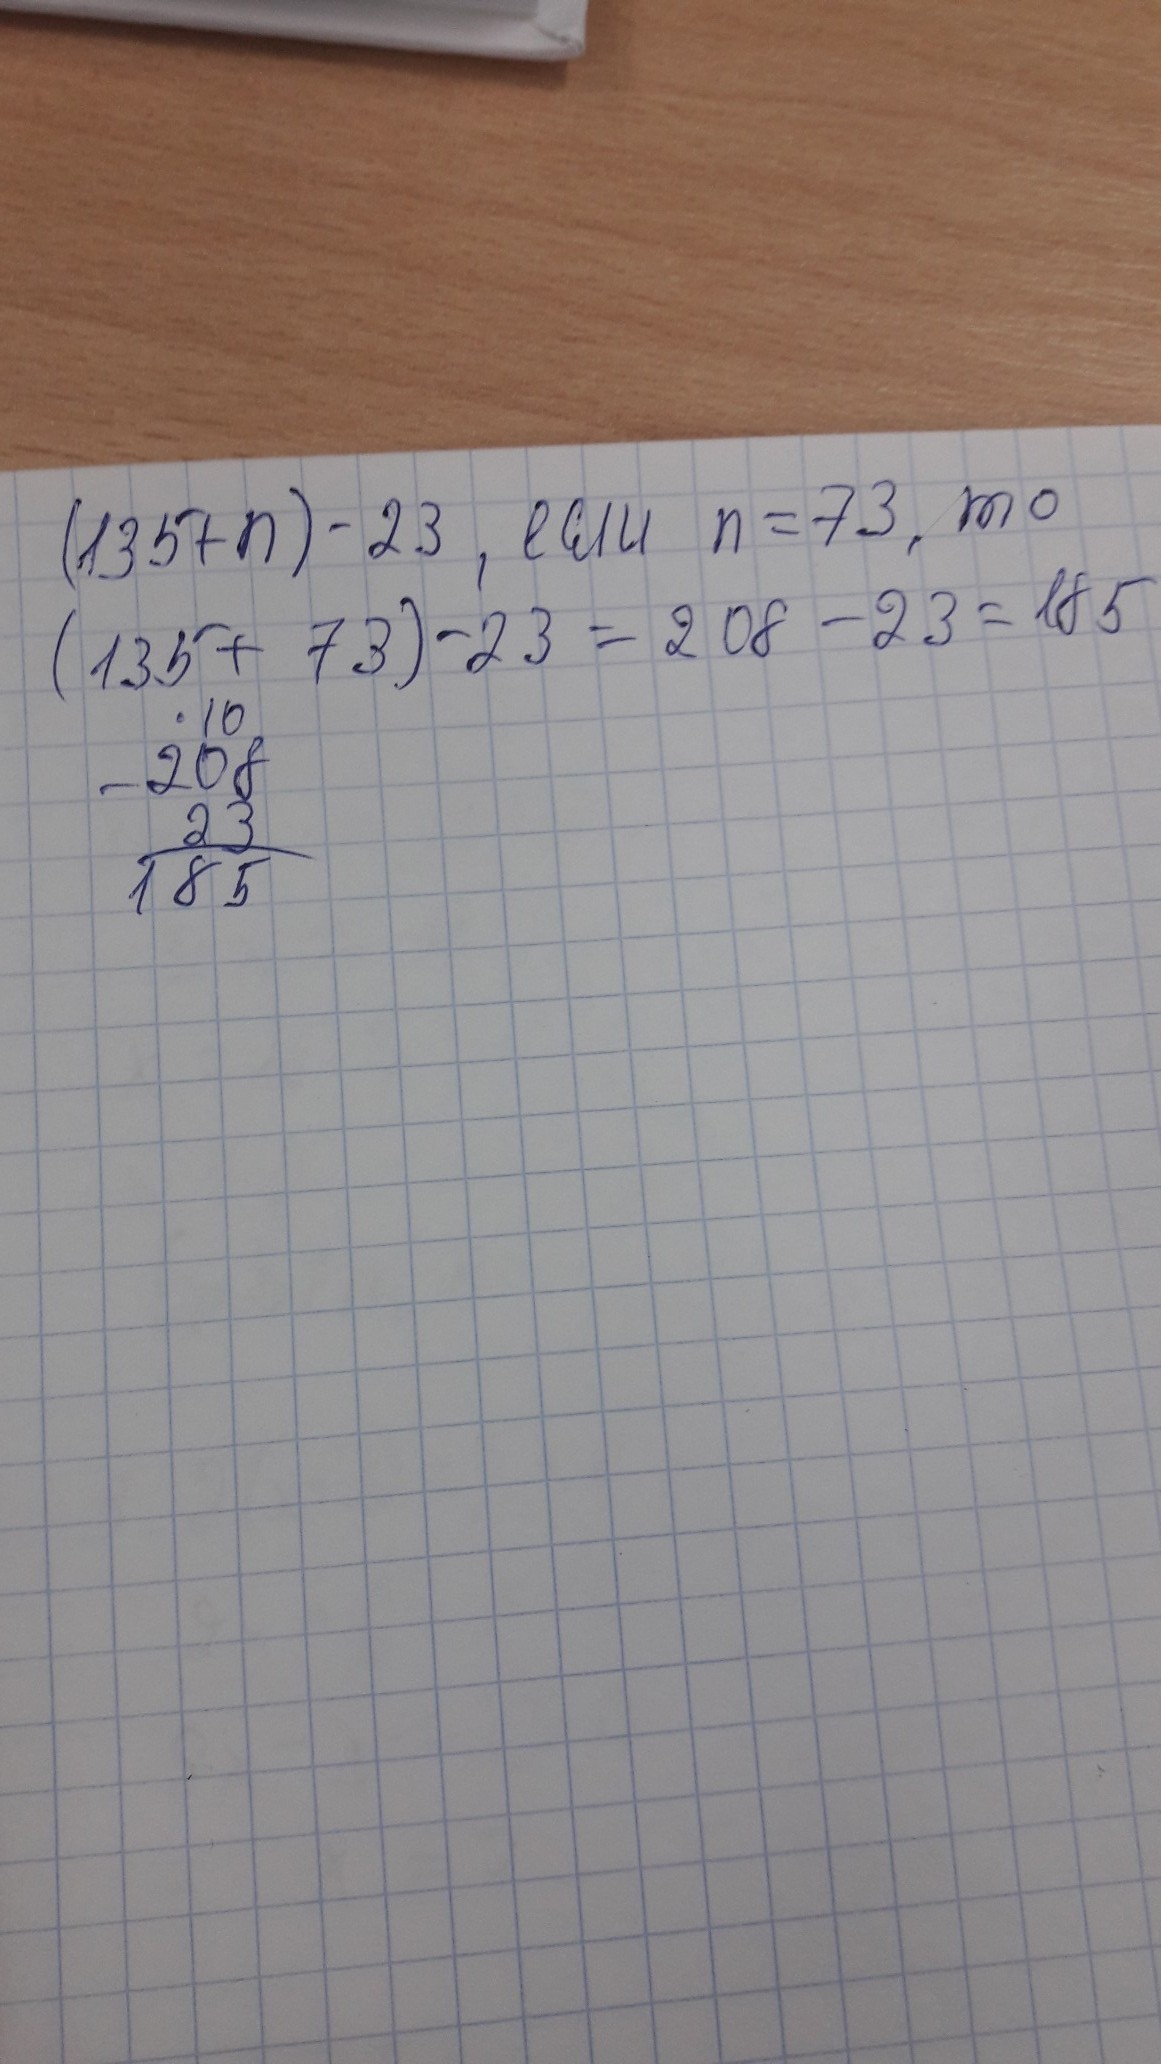 (135+n)-23, если n=73, то
(135+ 73)-23 = 208 -23= 185
·10
-208
23
185